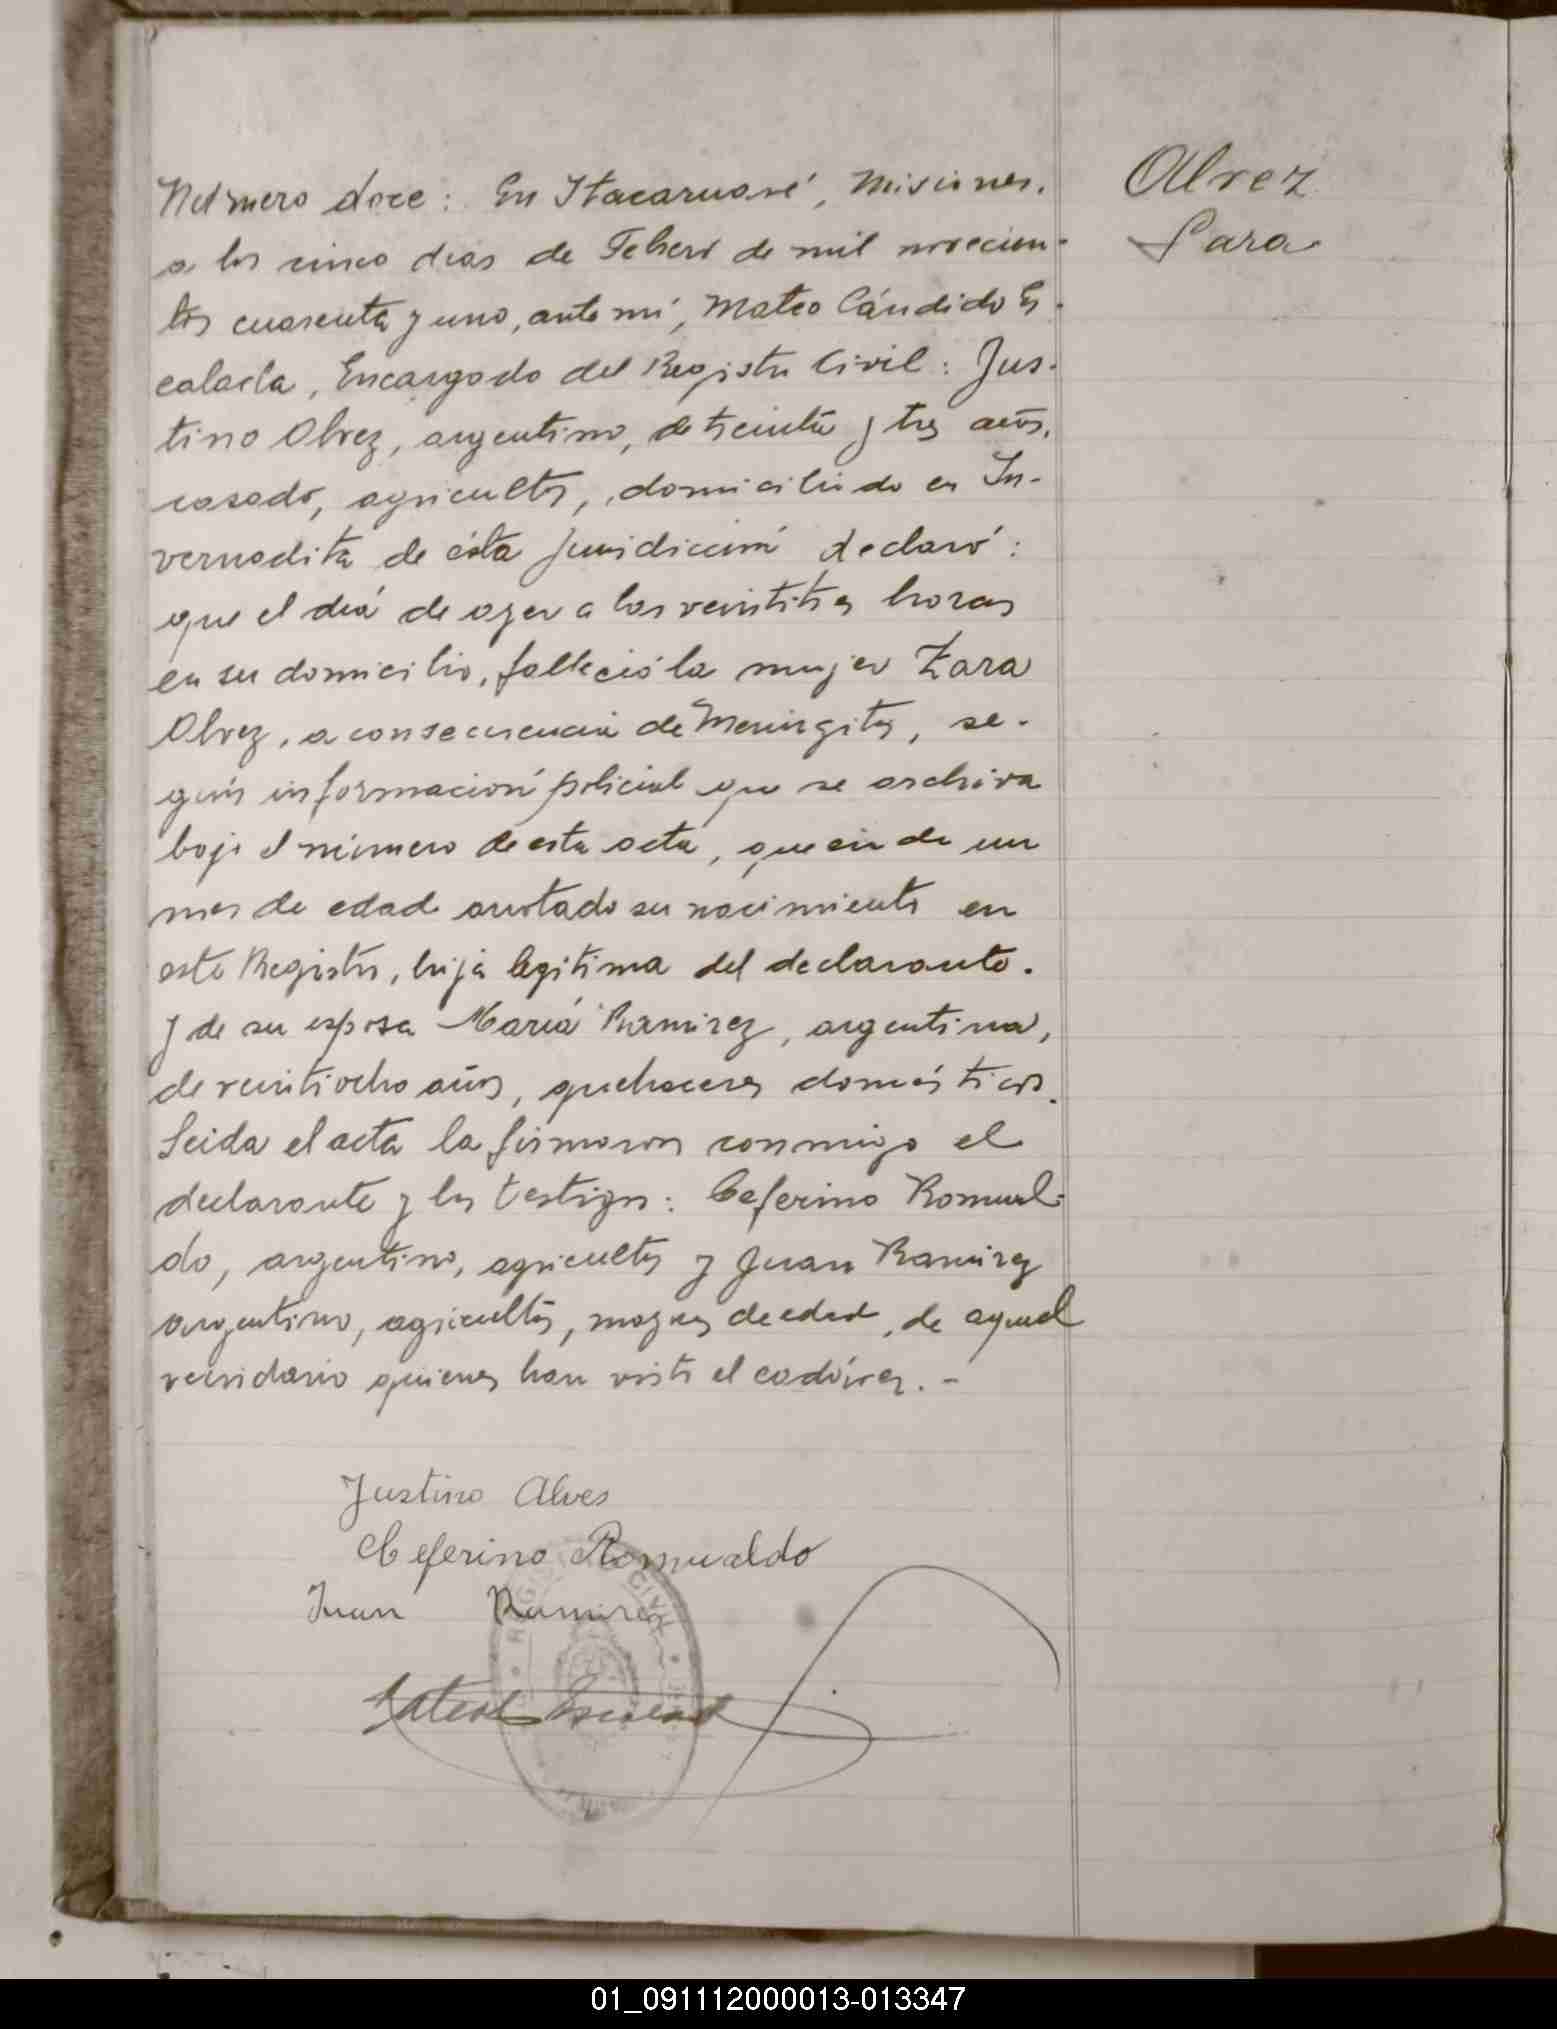 Número doce: En Itacaruaré, Misiones,
a los cinco dias de Febero de mil novecien-
tos cuarenta y uno, ante mí, Mateo Cándido Es-
calada, Encargado del Registro Civil: Jus-
tino Alvez, argentino, de treinta y tres años,
casado, agricultor, domiciliado en In-
vernadita de ésta juridicción declaró:
que el día de ayer a las veintitres horas
en su domicilio, falleció la mujer Zara
Alvez, a consecuencia de Meningitis, se-
gún información policial que se archiva
bajo el número de esta acta, que era de un
mes de edad anotado su nacimiento en
este Registro, hija legitima del declarante.
y de su esposa María Ramirez, argentina,
de veintiocho años, quehaceres domésticos.
Leida el acta la firmaron conmigo el
declarante y los testigos: Ceferino Romual-
do, argentino, agricultor y Juan Ramirez
argentino, agricultor, mayores de edad, de aquel
vecindario quienes han visto el cadáver. -
Alvez
Sara
Justino Alves
Ceferino Romualdo
Juan Ramirez
REGISTRO CIVIL
01_091112000013-013347